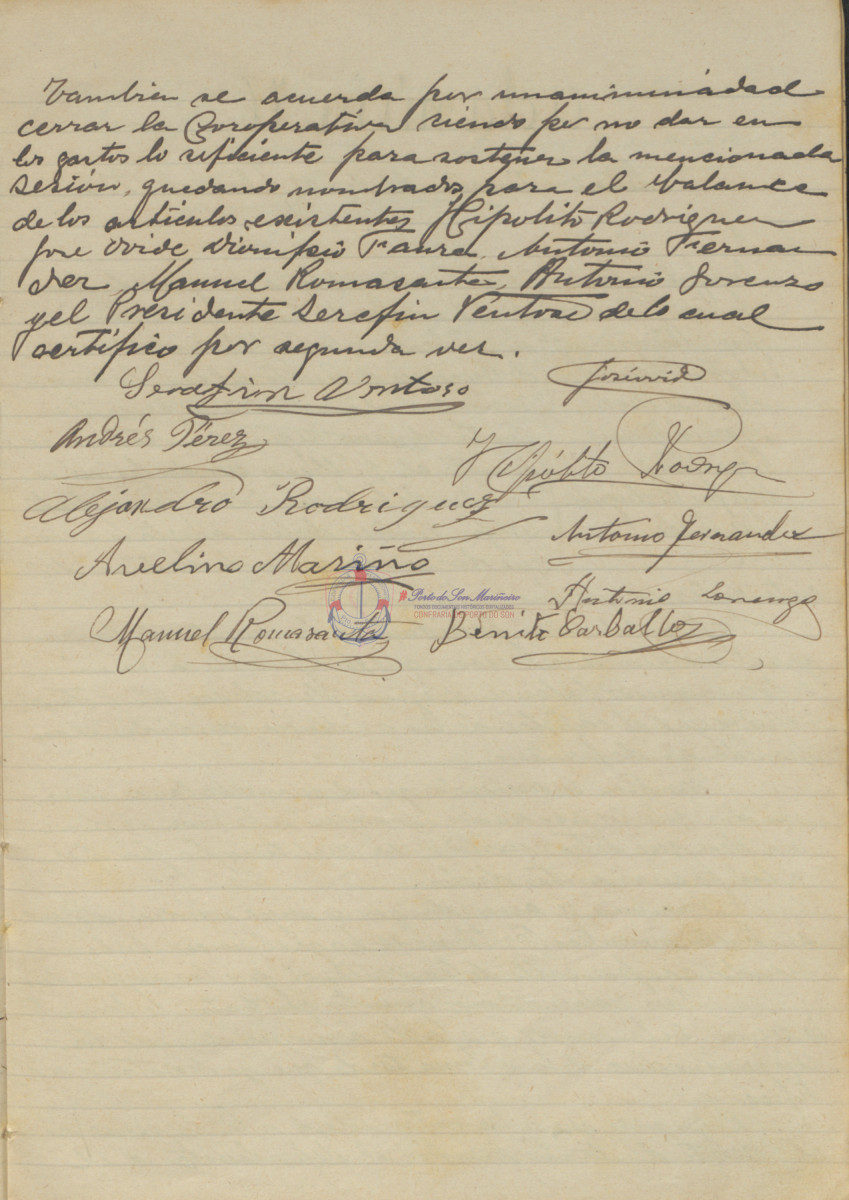 Tambien se acuerda por unaniminidad
cerrar la Cooperativa siendo por no dar en
los gastos lo suficiente para sostener la mencionada
sesión, quedando nombrados para el balance
de los artículos existentes Hipolito Rodriguez
jose Ovide Dionisio Faura, Antonio Fernan
dez Manuel Romasanta, Antonio Lorenzo
y el Presidente Serefin Ventoso de lo cual
certifico por segunda vez.
Serafin Ventoso
José ovide
Andrés Pérez
Hipólito Rodrigz
Alejandro Rodriguez
Antonio Fernandez
Avelino Mariño
Porto do Son Mariñeiro
FONDOS DOCUMENTAIS HISTÓRICOS DIXITALIZADOS
CONFRARÍA PORTO DO SON
Antonio Lorenzo
Manuel Romasanta
Benito Carballo